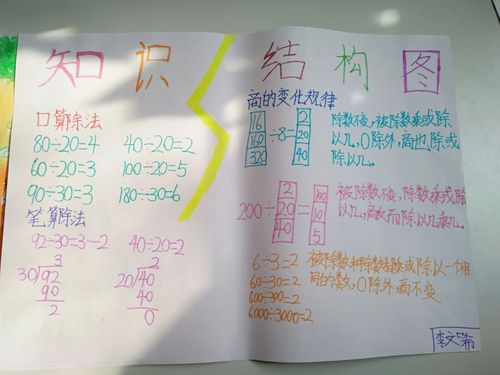 知识结构图
口算除法
80÷20=4 40÷20=2
60÷20=3 100÷20=5
90÷30=3 180÷30=6
笔算除法
92÷30=3…2 40÷20=2
3
30 92
90
2
2
20 40
40
0
商的变化规律
16
160
320
÷8=
2
20
40
除数不变，被除数乘或除
以几，0除外，商也 除或
除以几。
200÷
2
20
40
=
100
10
5
被除数不变，除数乘或除
以几，商 而除以几乘几。
6÷3=2
60÷30=2
600÷300=2
6000÷3000=2
被除数和除数 除或除以一个相
同的数，0除外，商不变
李文 希